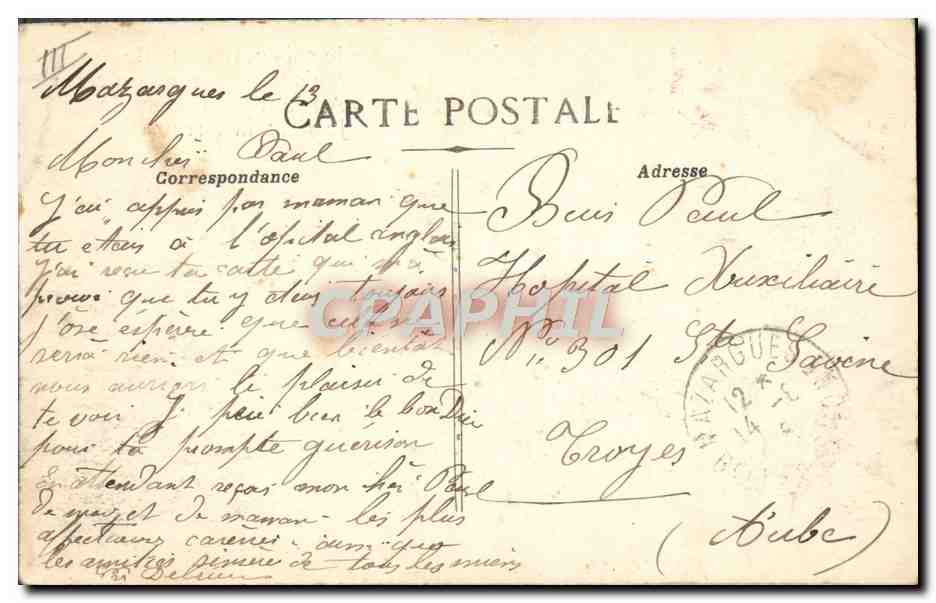 III
Mazargues le 13
CARTE POSTALE
Mon cher Paul
Correspondance
J'ai appris par maman que
tu étais à l'opital anglais
J'ai reçu ta carte qui m'a
que tu y étais toujours
J'ose espérer que
sera rien et que bientôt
nous aurions le plaisir de
te voir J prie bien le bon Dieu
pour ta prompte guérison
En attendant reçois mon cher Paul
de moi et de maman les plus
affectueuses caresses ainsi que
les amitiés sincère de tous les miens
Adresse
Paul
Hopital Auxiliaire
N° 301 Ste Savine
Troyes
(Aube)
MAZARGUES
12 *
14
CPAPHIL